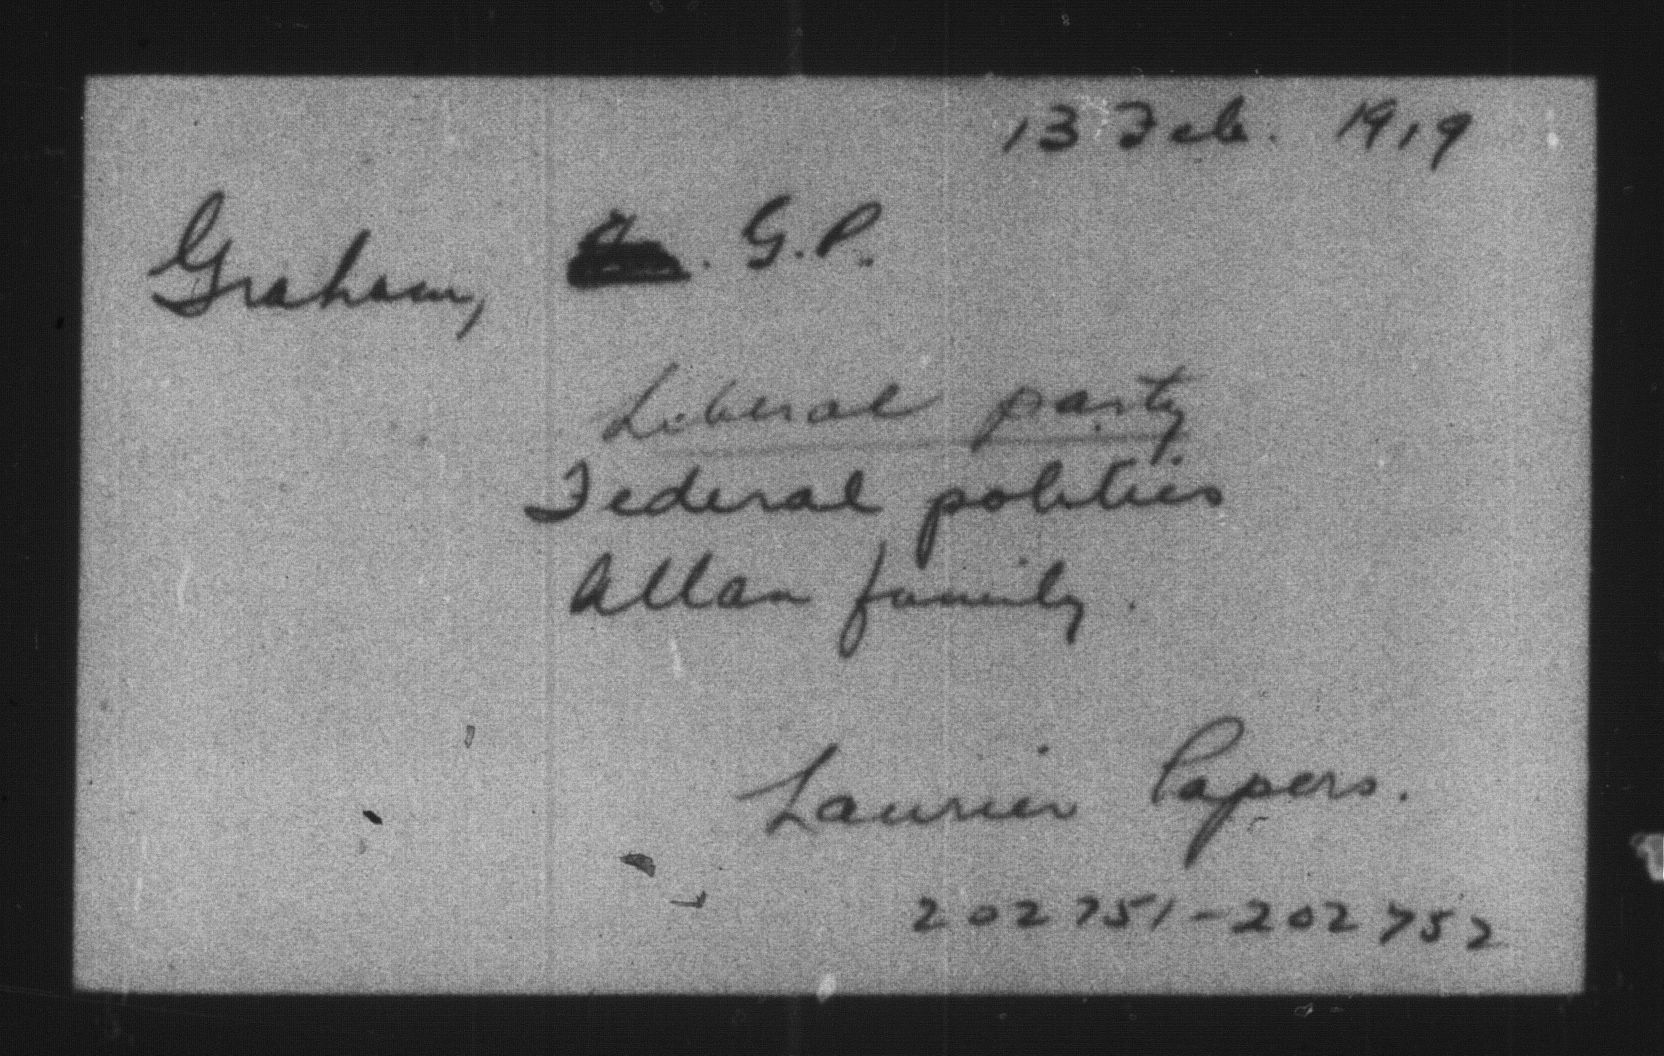 13 Feb. 1919
Graham, G.P.
Liberal party
Federal politics
Allan family.
Laurier Papers.
202751-202752